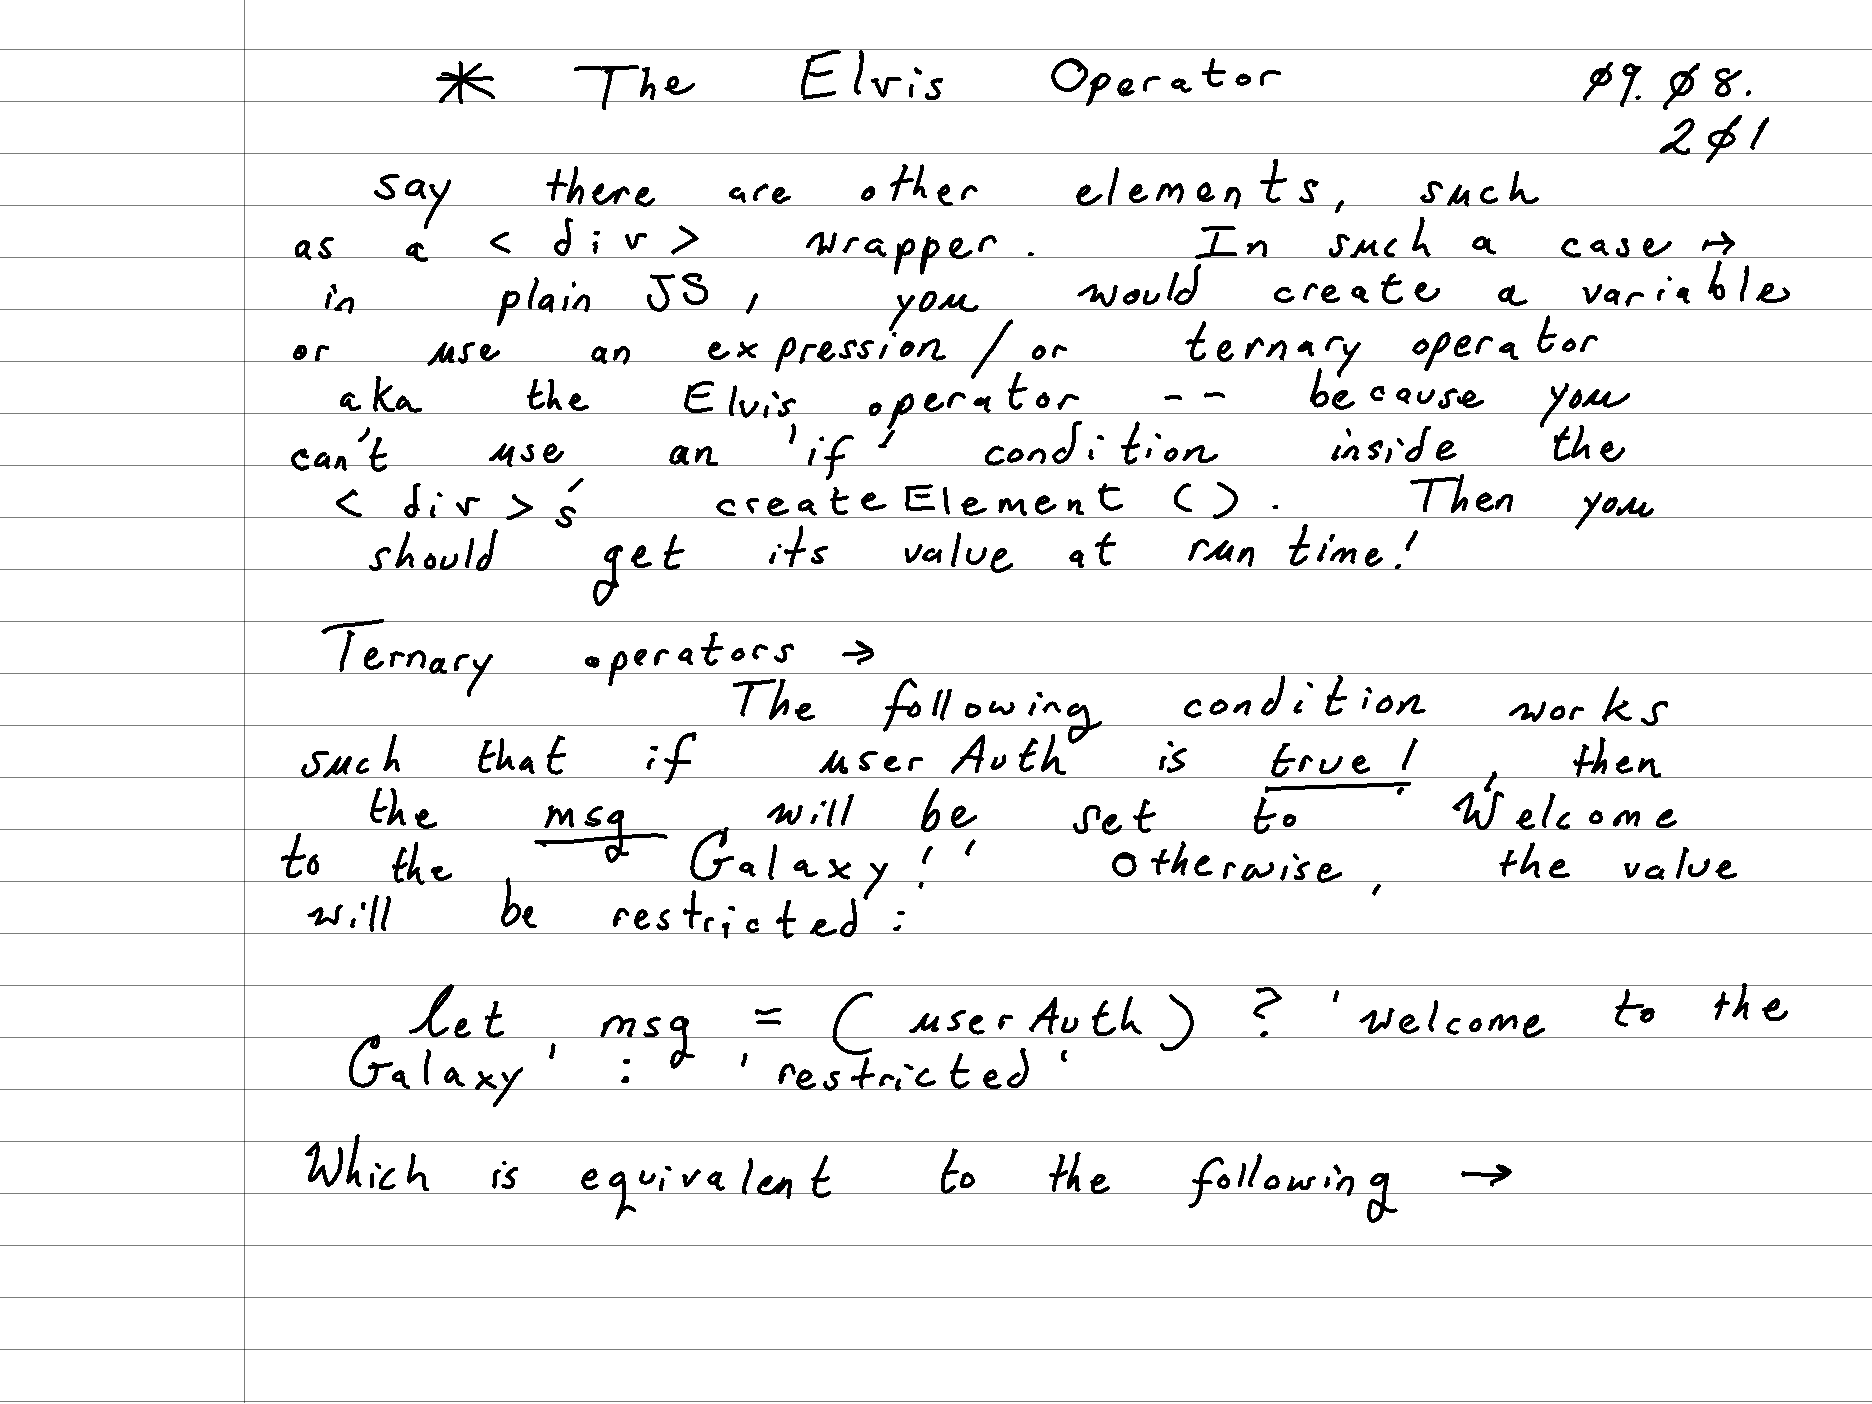 * The Elvis Operator ø9. ø8.
2ø1
say there are other elements, such
as a < div > wrapper. In such a case →
in plain JS, you would create a variable
or use an expression / or ternary operator
aka the Elvis operator -- because you
can't use an 'if' condition inside the
< div >'s createElement (). Then you
should get its value at run time!
Ternary operators →
The following condition works
such that if userAuth is true!, then
the msg will be set to 'Welcome
to the Galaxy!' Otherwise, the value
will be restricted:
let msg = (userAuth) ? 'welcome to the
Galaxy' : 'restricted'
Which is equivalent to the following →